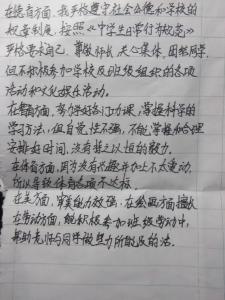 在德育方面，我严格遵守社会公德和学校的
规章制度，按照《中学生日常行为规范》
严格要求自己，尊敬师长，关心集体，团结同学，
但不积极参加学校及班级组织的各项
活动和文化娱乐活动。
在智育方面，努力学好各门功课，掌握科学的
学习方法，但自觉性不强，不能掌握和合理
安排好时间，没有持之以恒的毅力。
在体育方面，因为没有兴趣并加上不太爱动，
所以导致体育各项不达标。
在美方面，审美能力较强，在绘画方面擅长
在劳动方面，能积极参加班级劳动中，
帮助老师与同学做些力所能及的活。